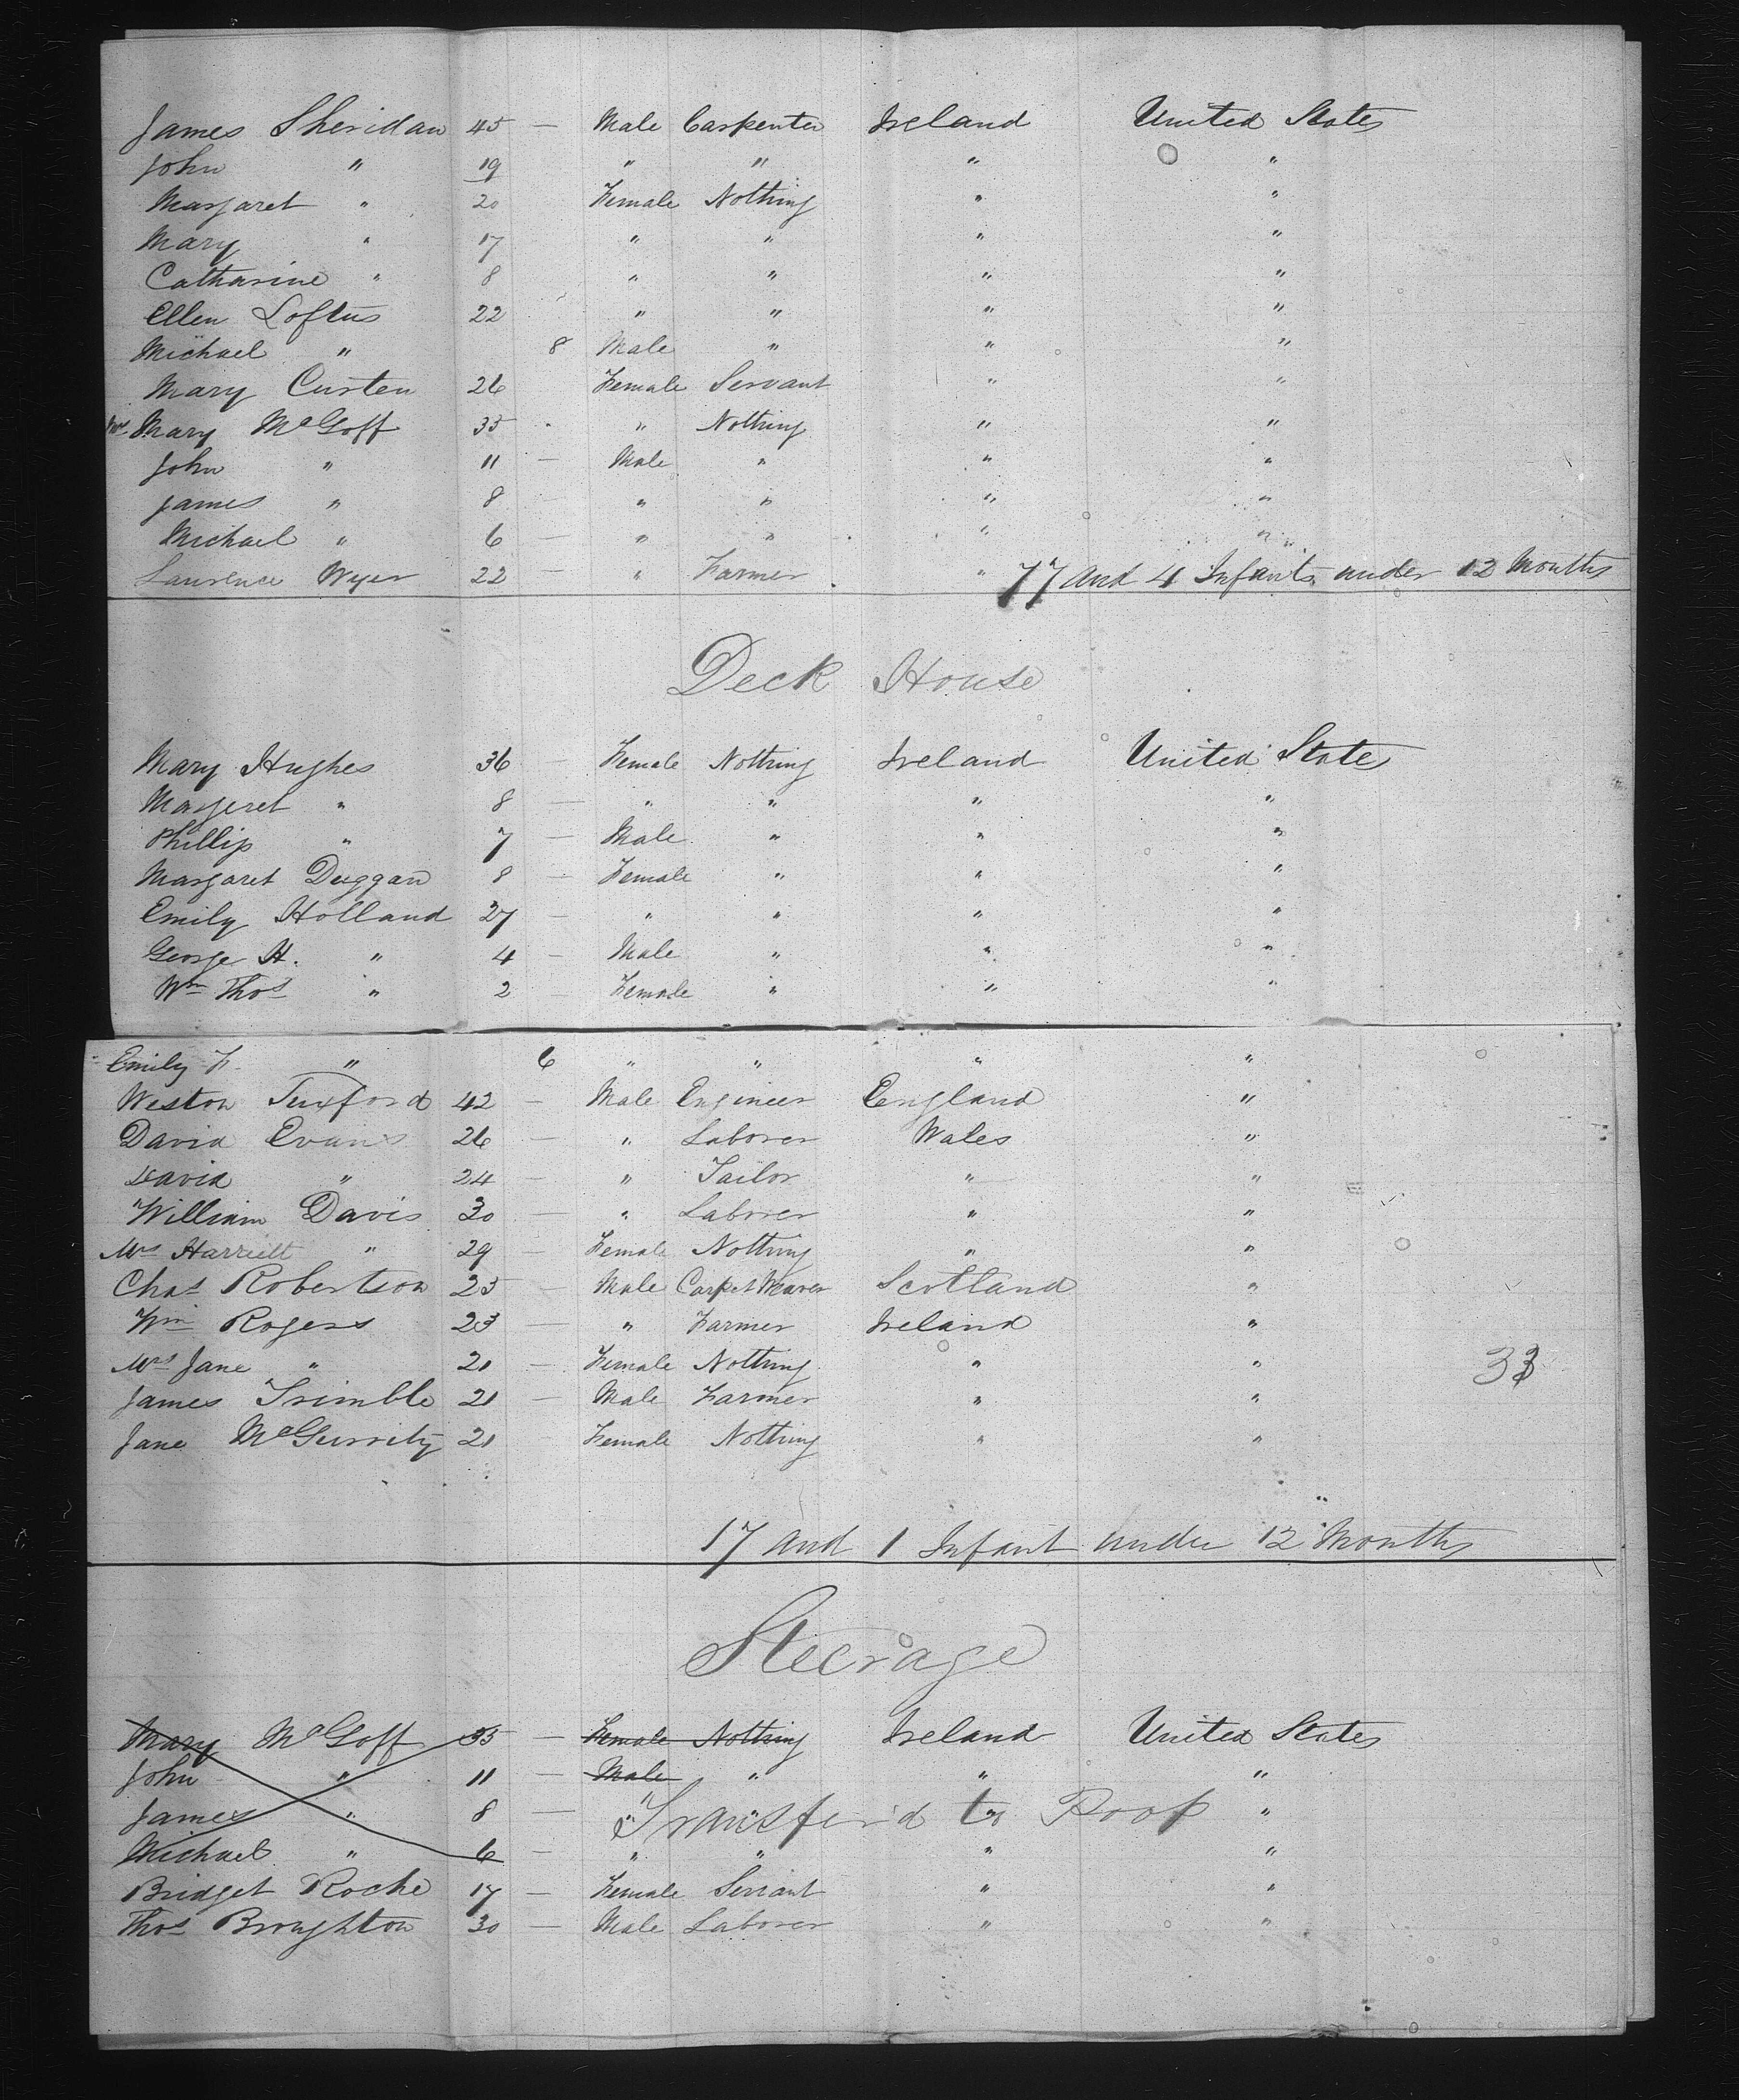 James Sheridan 45 — Male Carpenter Ireland United States
John " 19 " " " "
Margaret " 20 Female Nothing " "
Mary " 17 " " " "
Catharine " 8 " " " "
Ellen Loftus 22 " " " "
Michael " 8 Male " " "
Mary Custen 26 Female Servant " "
Mrs Mary McGoff 35 " Nothing " "
John " 11 — Male " " "
James " 8 — " " " "
Michael " 6 — " " " "
Laurence Wyer 22 — " Farmer "
77 and 4 Infants under 12 Months
Deck House
Mary Hughes 36 — Female Nothing Ireland United States
Margeret " 8 — " " " "
Phillip " 7 — Male " " "
Margaret Duggan 8 — Female " " "
Emily Holland 27 — " " " "
George H. " 4 — Male " " "
Wm Thos " 2 — Female " " "
Emily F. " 6 " " " "
Weston Tuxford 42 — Male Engineer England "
David Evans 26 — " Laborer Wales "
David " 24 — " Tailor " "
William Davis 30 — " Laborer " "
Mrs Harriett " 29 — Female Nothing " "
Chas Robertson 25 — Male Carpet Weaver Scotland "
Wm Rogers 23 — " Farmer Ireland "
Mrs Jane " 21 — Female Nothing " "
33
James Trimble 21 — Male Farmer " "
Jane McGurrity 21 Female Nothing " "
17 and 1 Infant under 12 Months
Steerage
Mary McGoff 35 — Female Nothing Ireland United States
John " 11 — Male " " "
James " 8 — " " " "
Transfer'd to Poop
Michael " 6 — " " " "
Bridget Roche 17 — Female Servant " "
Thos Broughton 30 — Male Laborer " "